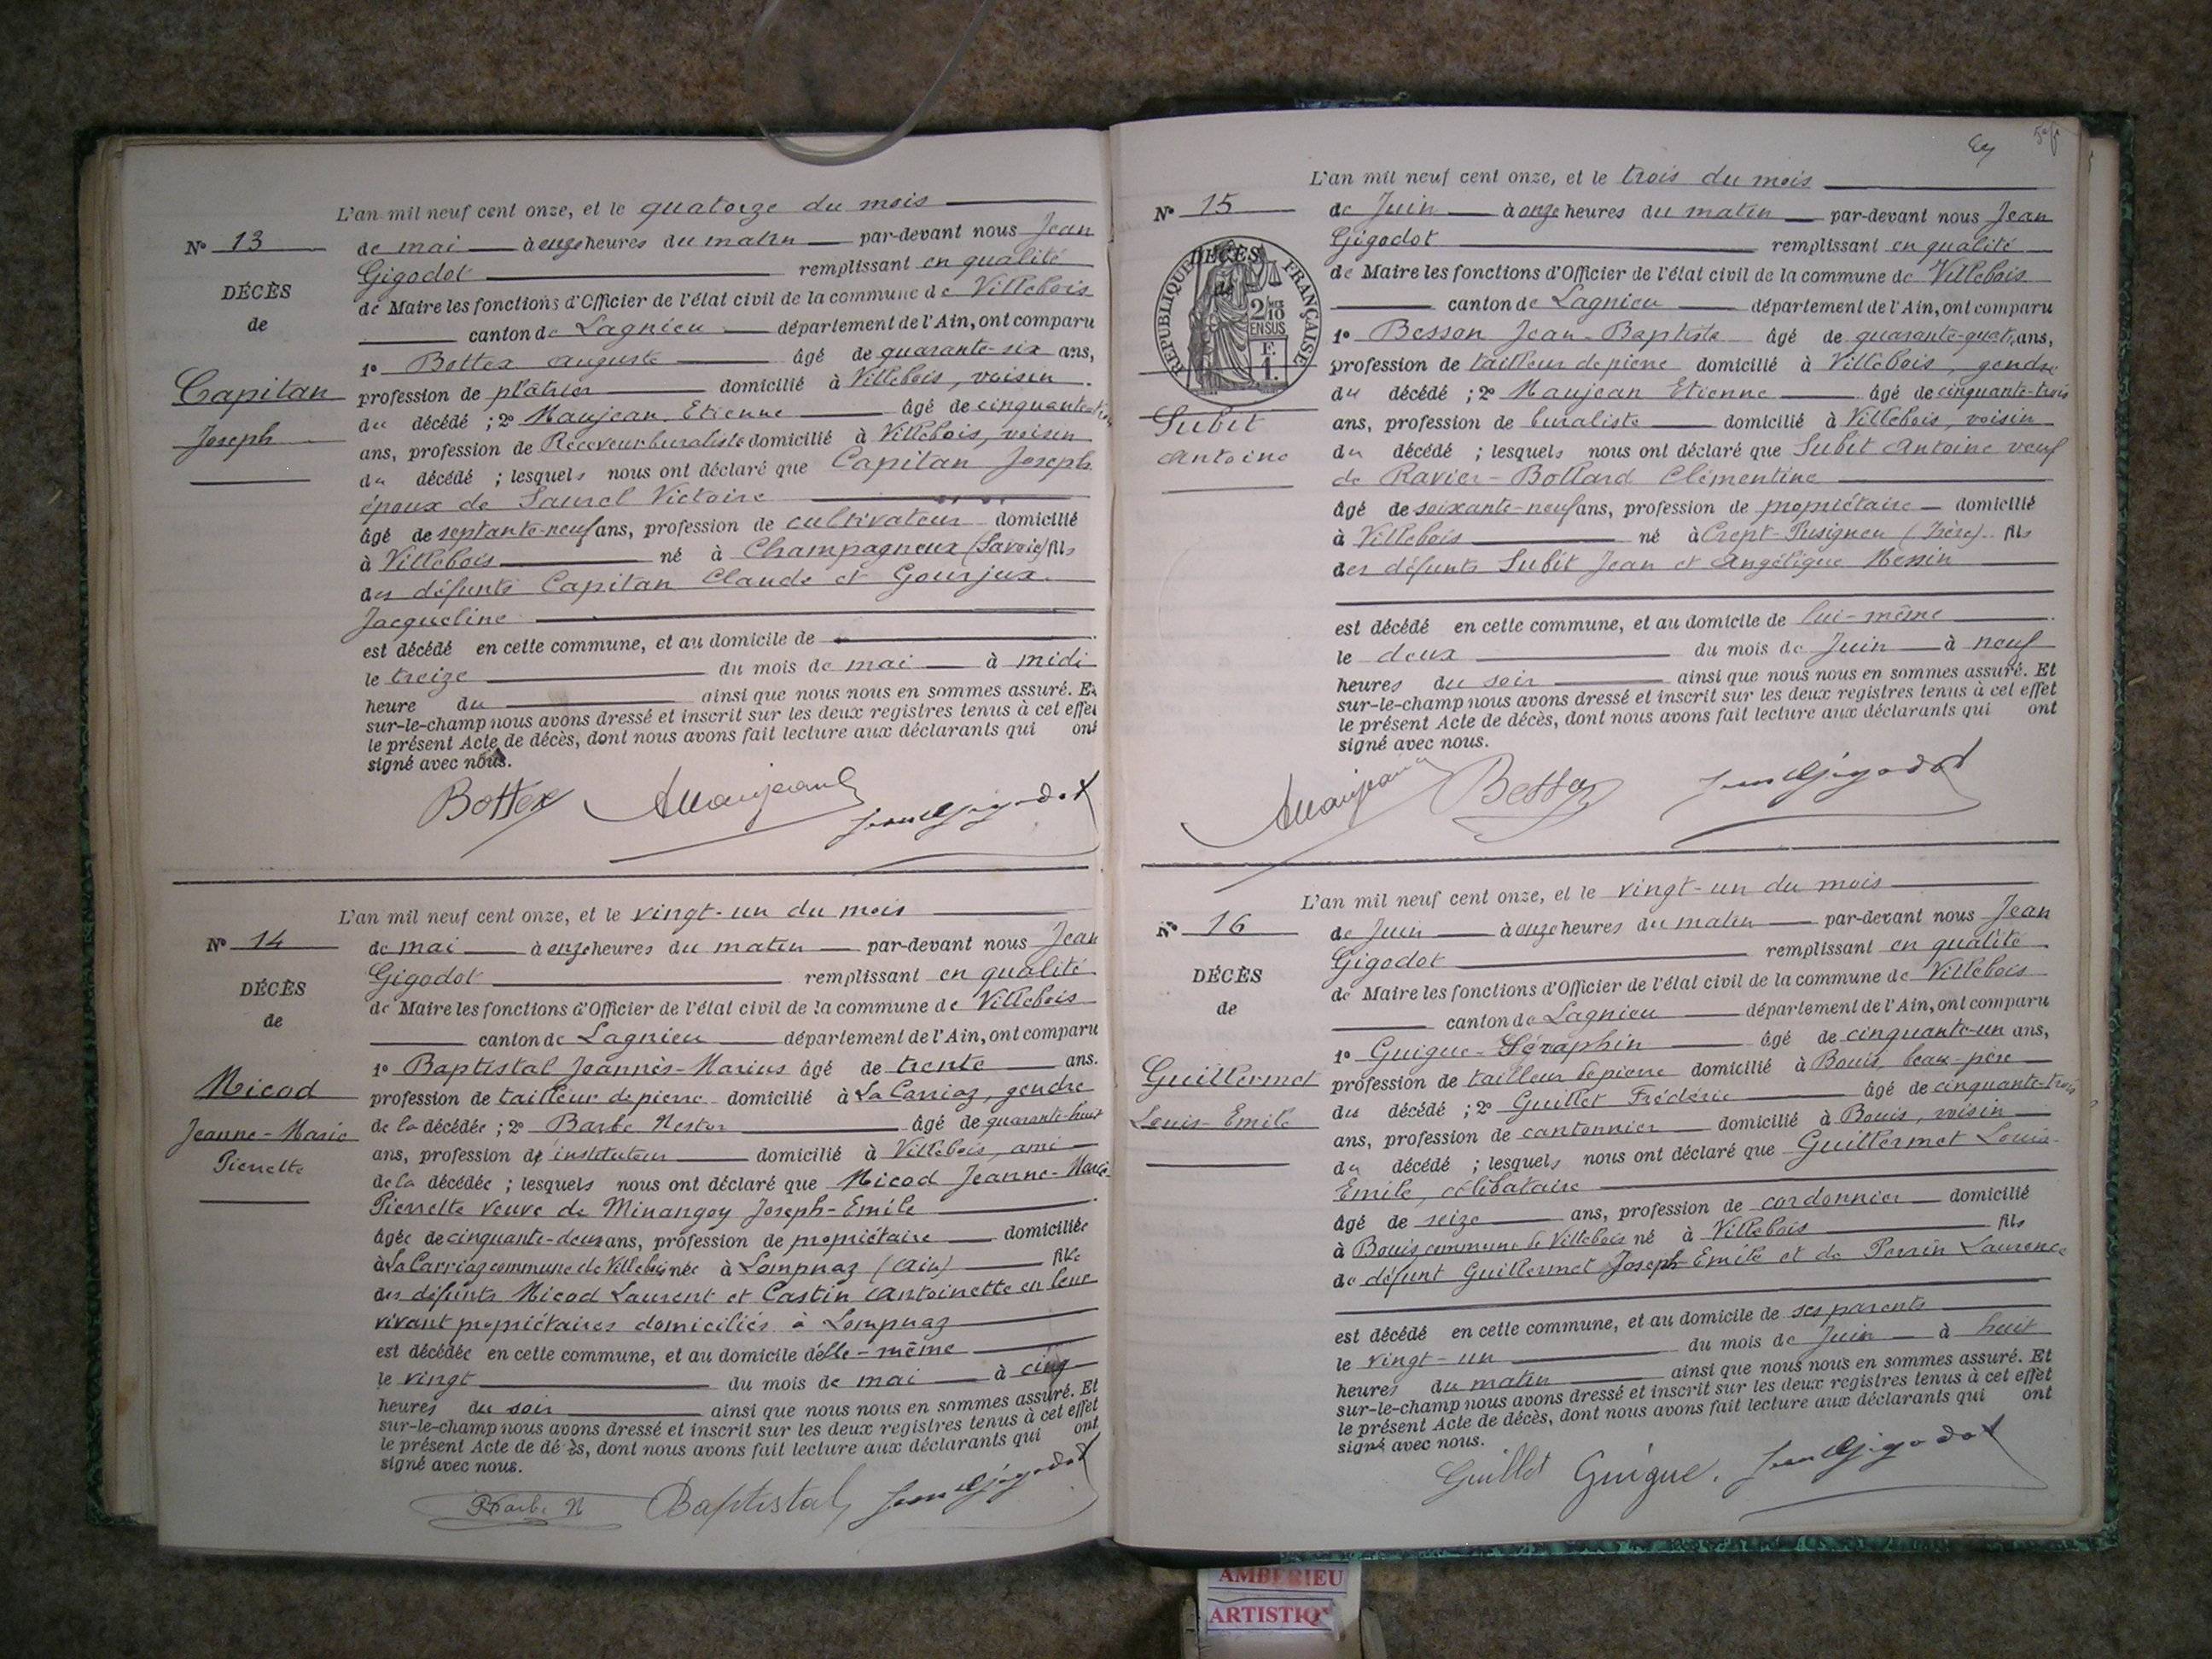 L'an mil neuf cent onze, et le quatorze du mois
N° 13
de mai à onze heures du matin par-devant nous Jean
Gigodot remplissant en qualité
DÉCÈS
de Maire les fonctions d'Officier de l'état civil de la commune de Villebois
de
canton de Lagnieu département de l'Ain, ont comparu
1° Bottex Auguste âgé de quarante-six ans,
Capitan
profession de plâtrier domicilié à Villebois, voisin
du décédé ; 2° Maujean Etienne âgé de cinquante-trois
Joseph
ans, profession de Receveur buraliste domicilié à Villebois, voisin
du décédé ; lesquels nous ont déclaré que Capitan Joseph
époux de Saurel Victoire
âgé de septante-neuf ans, profession de cultivateur domicilié
à Villebois né à Champagneux (Savoie) fils
des défunts Capitan Claude et Gourjux
Jacqueline
est décédé en cette commune, et au domicile de
le treize du mois de mai à midi
heure du ainsi que nous nous en sommes assuré. Et
sur-le-champ nous avons dressé et inscrit sur les deux registres tenus à cet effet
le présent Acte de décès, dont nous avons fait lecture aux déclarants qui ont
signé avec nous.
Bottex AMaujean Jean Gigodot
L'an mil neuf cent onze, et le vingt-un du mois
N° 14
de mai à onze heures du matin par-devant nous Jean
Gigodot remplissant en qualité
DÉCÈS
de Maire les fonctions d'Officier de l'état civil de la commune de Villebois
de
canton de Lagnieu département de l'Ain, ont comparu
1° Baptistal Joannès-Marius âgé de trente ans.
Nicod
profession de tailleur de pierre domicilié à La Carriaz, gendre
Jeanne-Marie
de la décédée ; 2° Barbe Nestor âgé de quarante-huit
Pierrette
ans, profession d'instituteur domicilié à Villebois, ami
de la décédée ; lesquels nous ont déclaré que Nicod Jeanne-Marie-
Pierrette veuve de Minangoy Joseph-Emile
âgée de cinquante-deux ans, profession de propriétaire domiciliée
à La Carriaz commune de Villebois née à Lompnaz (Ain) fille
des défunts Nicod Laurent et Castin Antoinette en leur
vivant propriétaires domiciliés à Lompnaz
est décédée en cette commune, et au domicile d'elle-même
le vingt du mois de mai à cinq
heures du soir ainsi que nous nous en sommes assuré. Et
sur-le-champ nous avons dressé et inscrit sur les deux registres tenus à cet effet
le présent Acte de dé ès, dont nous avons fait lecture aux déclarants qui ont
signé avec nous.
Barbe N Baptistal Jean Gigodot
L'an mil neuf cent onze, et le trois du mois
N° 15
de Juin à onze heures du matin par-devant nous Jean
Gigodot remplissant en qualité
DÉCÈS
de
RÉPUBLIQUE FRANÇAISE
2/10 EN SUS
F.
1.
de Maire les fonctions d'Officier de l'état civil de la commune de Villebois
canton de Lagnieu département de l'Ain, ont comparu
1° Besson Jean-Baptiste âgé de quarante-quatre ans,
profession de tailleur de pierre domicilié à Villebois, gendre
du décédé ; 2° Maujean Etienne âgé de cinquante-trois
Subit
ans, profession de buraliste domicilié à Villebois, voisin
Antoine
du décédé ; lesquels nous ont déclaré que Subit Antoine veuf
de Ravier-Bollard Clémentine
âgé de soixante-neuf ans, profession de propriétaire domicilié
à Villebois né à Crept-Pusigneu (Isère) fils
des défunts Subit Jean et Angélique Messin
est décédé en cette commune, et au domicile de lui-même
le deux du mois de Juin à neuf
heures du soir ainsi que nous nous en sommes assuré. Et
sur-le-champ nous avons dressé et inscrit sur les deux registres tenus à cet effet
le présent Acte de décès, dont nous avons fait lecture aux déclarants qui ont
signé avec nous.
AMaujean Besson Jean Gigodot
L'an mil neuf cent onze, et le vingt-un du mois
N° 16
de Juin à onze heures du matin par-devant nous Jean
Gigodot remplissant en qualité
DÉCÈS
de Maire les fonctions d'Officier de l'état civil de la commune de Villebois
de
canton de Lagnieu département de l'Ain, ont comparu
1° Guigue-Séraphin âgé de cinquante-un ans,
Guillermet
profession de tailleur de pierre domicilié à Bouis, beau-père
Louis-Emile
du décédé ; 2° Guillet Frédéric âgé de cinquante-trois
ans, profession de cantonnier domicilié à Bouis, voisin
du décédé ; lesquels nous ont déclaré que Guillermet Louis-
Emile, célibataire
âgé de seize ans, profession de cordonnier domicilié
à Bouis commune de Villebois né à Villebois fils
de défunt Guillermet Joseph-Emile et de Perrin Laurence
est décédé en cette commune, et au domicile de ses parents
le vingt-un du mois de Juin à huit
heures du matin ainsi que nous nous en sommes assuré. Et
sur-le-champ nous avons dressé et inscrit sur les deux registres tenus à cet effet
le présent Acte de décès, dont nous avons fait lecture aux déclarants qui ont
signé avec nous.
Guillet Guigue. Jean Gigodot
AMBERIEU
ARTISTIQ